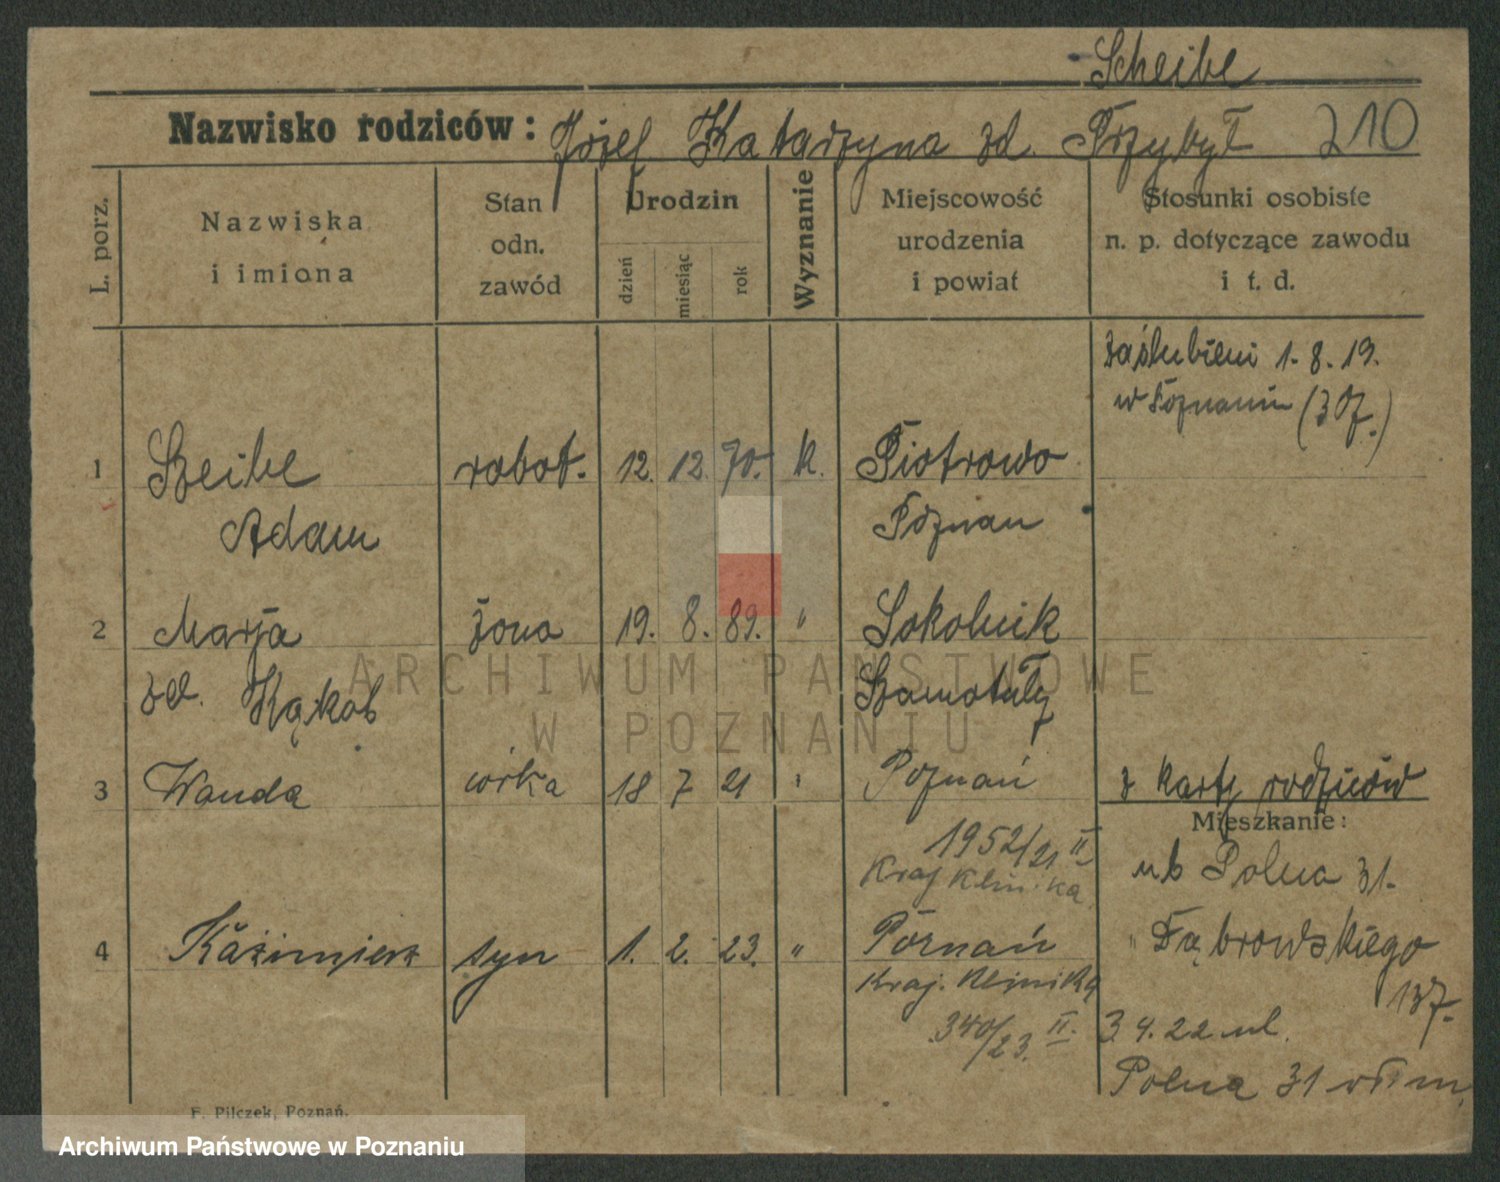 Scheibe
Nazwisko rodziców: Józef Katarzyna zd. Przybył 210
L. porz.
Nazwiska
i imiona
Stan
odn.
zawód
Urodzin
dzień
miesiąc
rok
Wyznanie
Miejscowość
urodzenia
i powiat
Stosunki osobiste
n. p. dotyczące zawodu
i t. d.
zaślubieni 1. 8. 19.
w Poznaniu
1 Szeibe robot. 12. 12. 70. k. Piotrowo
Adam Poznań
2 Marja żona 19. 8. 89. " Sokolnik
zd. Kąkol Szamotuły
3 Wanda córka 18 7 21 " Poznań z karty rodziców
Mieszkanie:
1952/21 II
Kraj Klinika
ul Polna 31.
4 Kaźimierz syn 1. 2. 23. " Poznań " Dąbrowskiego
137.
Kraj. Klinika
340/23. II.
3 4. 22 ul.
Polna 31
F. Pilczek, Poznań.
ARCHIWUM PAŃSTWOWE
W POZNANIU
Archiwum Państwowe w Poznaniu